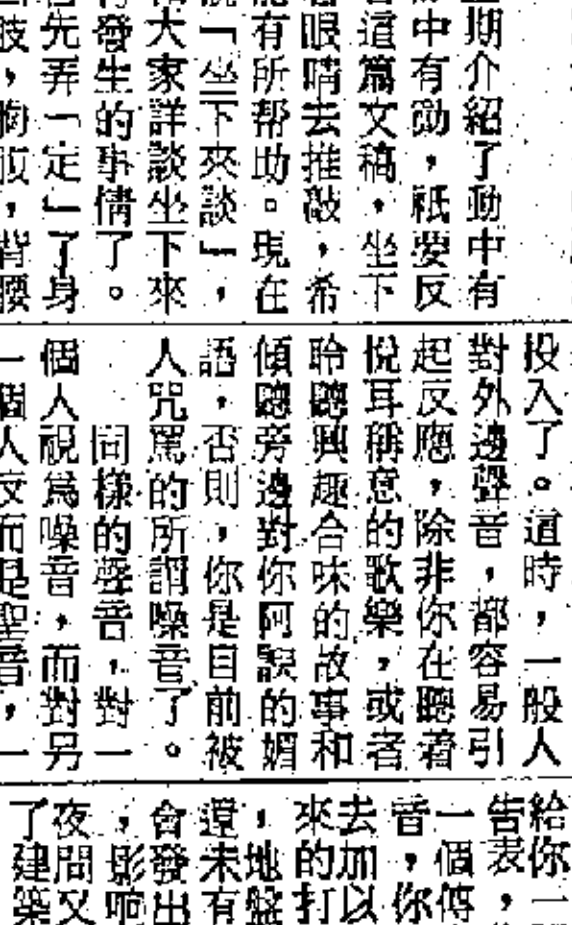 期介紹了動中有
中有動，祇要反
這篇文稿，坐下
眼睛去推敲，希
有所幫助。現在
「坐下來談」，
大家詳談坐下來
發生的事情了。
先弄「定」了身
，胸
，背腰
投入了。這時，一般人
對外邊聲音，都容易引
起反應，除非你在聽着
悅耳稱意的歌樂，或者
聆聽興趣合味的故事和
傾聽旁邊對你阿諛的媚
語，否則，你是目前被
人咒罵的所謂噪音了。
同樣的聲音，對一
個人視爲噪音，而對另
一個人反而是聖音，一
給你一
告表，
一個傳
音，你
去加以
來的打
，地盤
還未有
會發出
，影响
夜間又
了建築